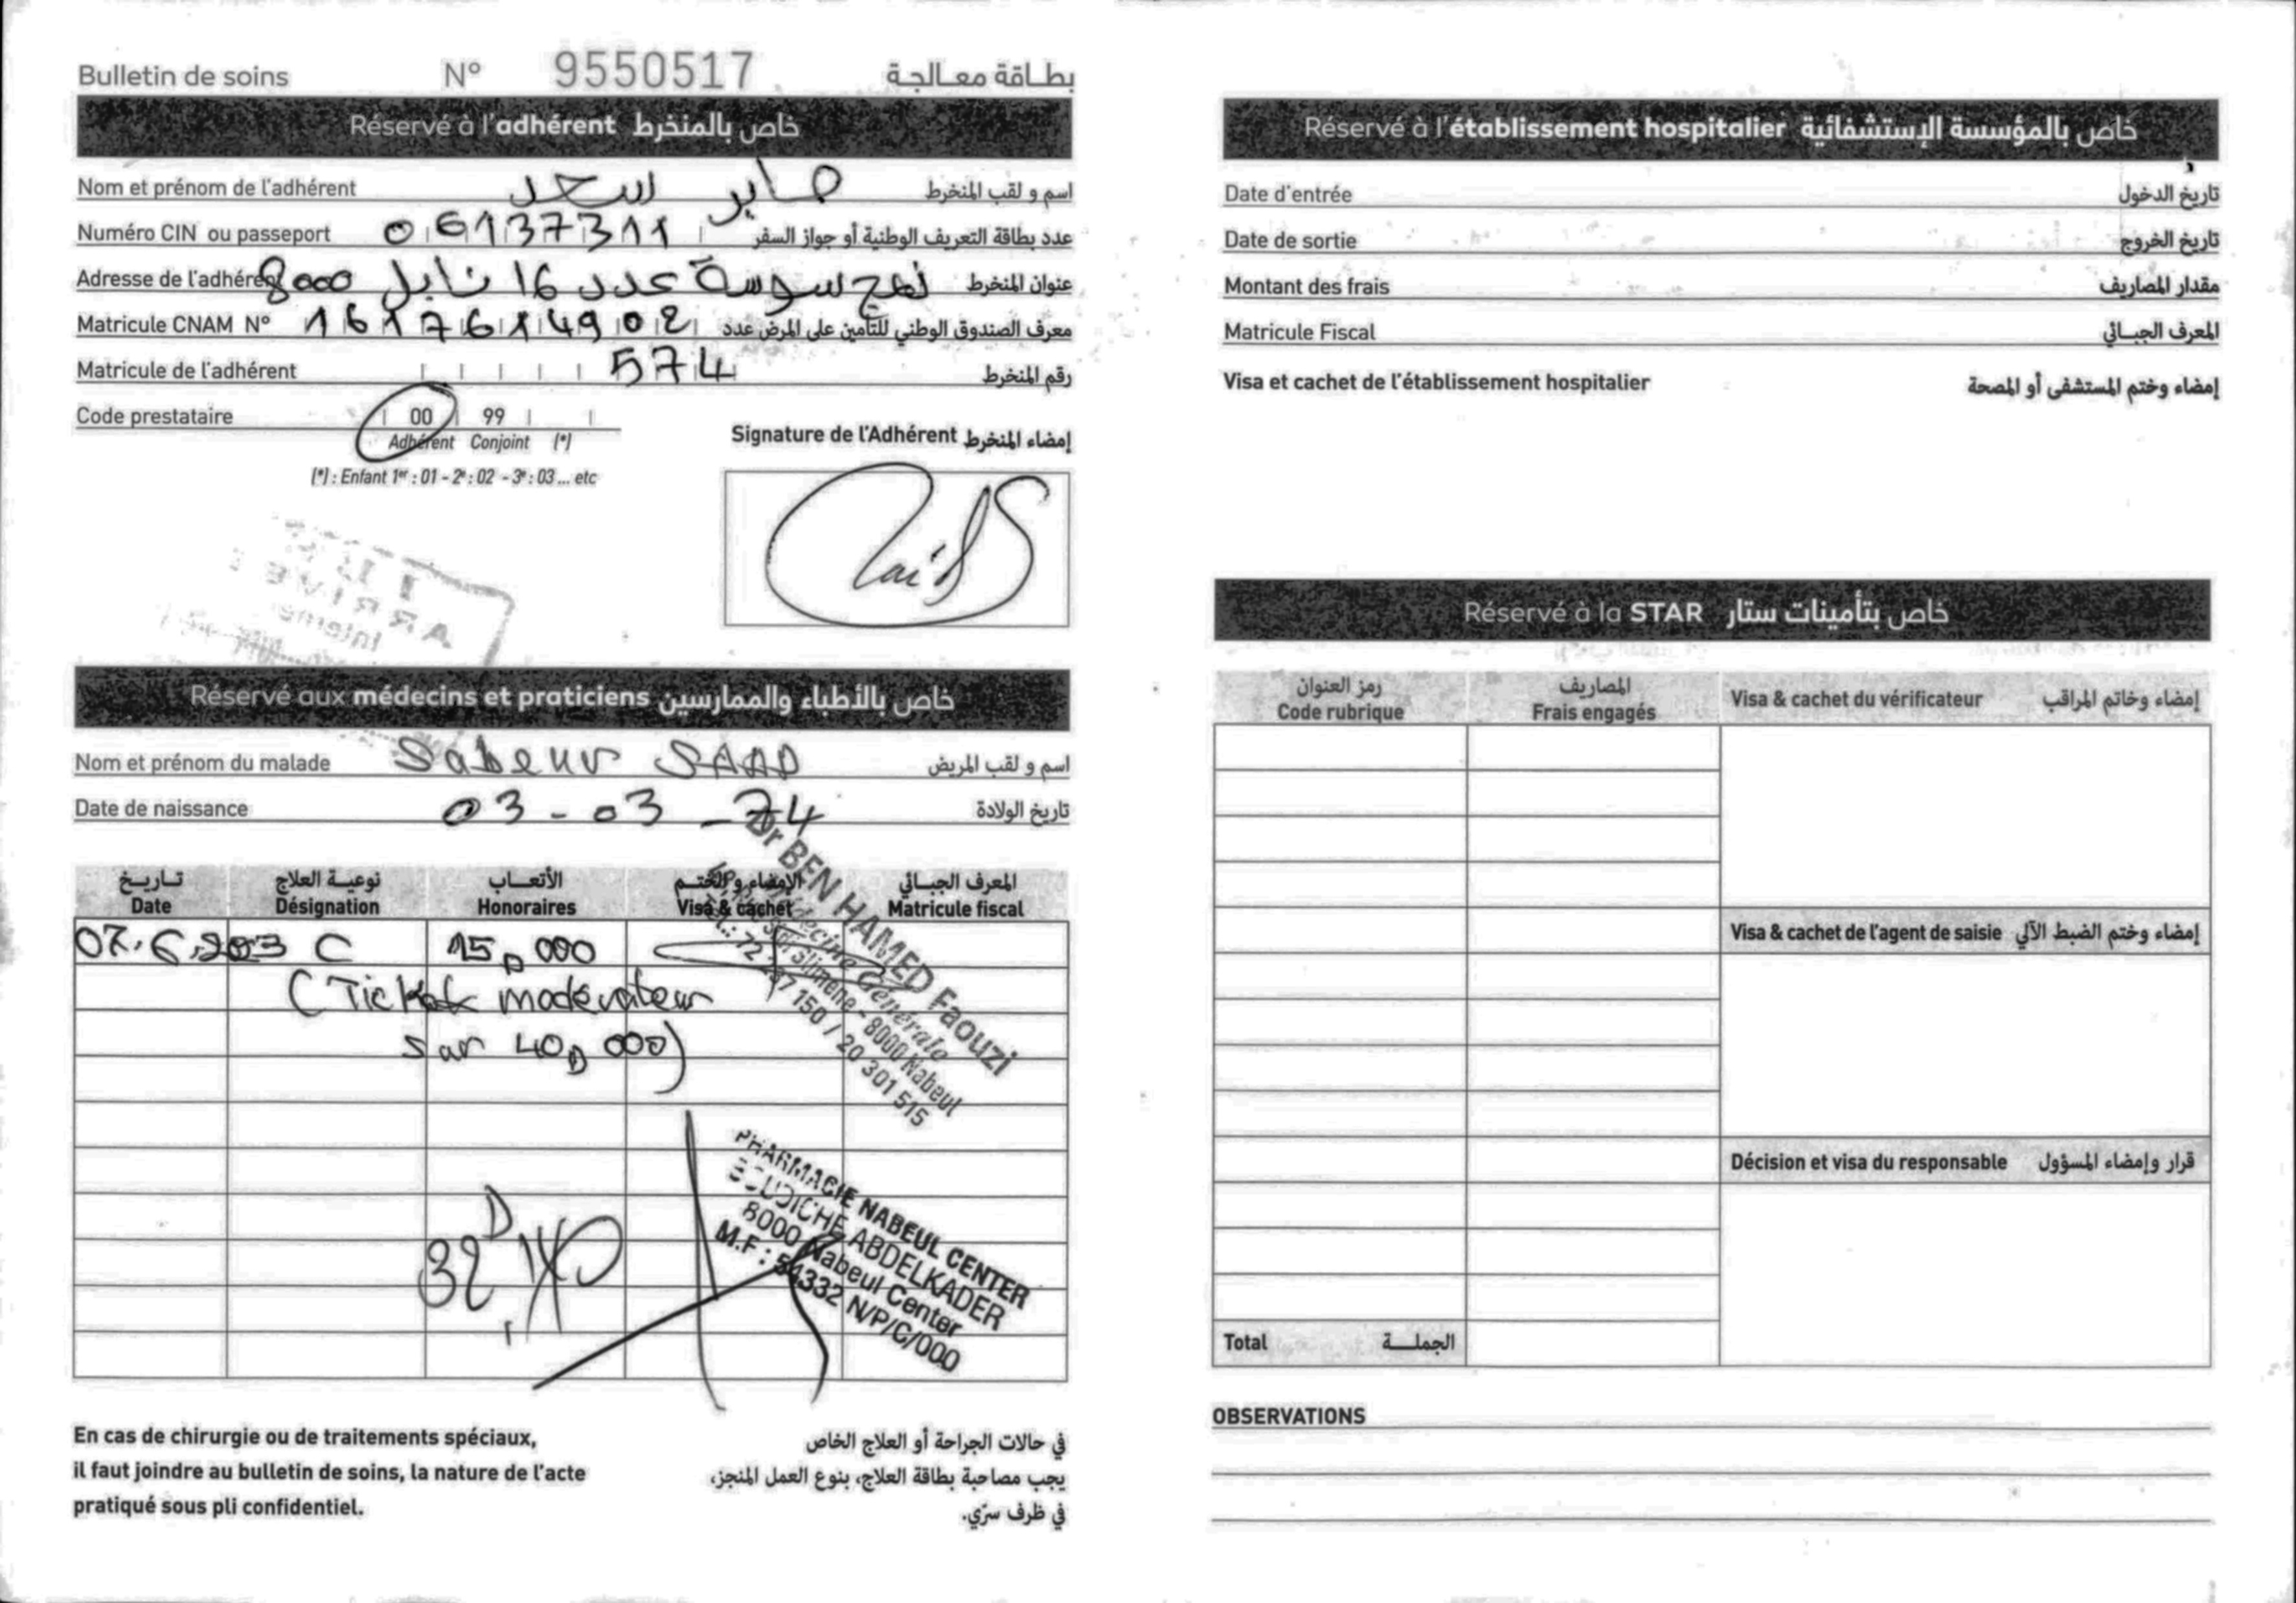 Bulletin de soins N° 9550517 بطاقة معالجة
Réservé à l'adhérent خاص بالمنخرط
Nom et prénom de l'adhérent صابر سعد اسم و لقب المنخرط
Numéro CIN ou passeport 06137311 عدد بطاقة التعريف الوطنية أو جواز السفر
Adresse de l'adhérent 8000 نهج سوسة عدد 16 نابل عنوان المنخرط
Matricule CNAM N° 1617614902 معرف الصندوق الوطني للتأمين على المرض عدد
Matricule de l'adhérent 574 رقم المنخرط
Code prestataire 00 99
Adhérent Conjoint (*)
(*) : Enfant 1er : 01 - 2e : 02 - 3e : 03 ... etc
Signature de l'Adhérent إمضاء المنخرط
Réservé aux médecins et praticiens خاص بالأطباء والممارسين
Nom et prénom du malade Sabeur SAAD اسم و لقب المريض
Date de naissance 03-03-74 تاريخ الولادة
تاريخ نوعية العلاج الأتعاب الإمضاء و الختم المعرف الجبائي
Date Désignation Honoraires Visa & cachet Matricule fiscal
C 15D000
(Ticket modérateur
sur 40D000)
Dr BEN HAMED Faouzi
Médecine Générale
8000 Nabeul
20 301 515
PHARMACIE NABEUL CENTER
ABDELKADER
8000 Nabeul Center
M.F : 54332 N/P/C/000
En cas de chirurgie ou de traitements spéciaux,
il faut joindre au bulletin de soins, la nature de l'acte
pratiqué sous pli confidentiel.
في حالات الجراحة أو العلاج الخاص
يجب مصاحبة بطاقة العلاج، بنوع العمل المنجز،
في ظرف سرّي.
Réservé à l'établissement hospitalier خاص بالمؤسسة الإستشفائية
Date d'entrée تاريخ الدخول
Date de sortie تاريخ الخروج
Montant des frais مقدار المصاريف
Matricule Fiscal المعرف الجبائي
Visa et cachet de l'établissement hospitalier إمضاء وختم المستشفى أو المصحة
Réservé à la STAR خاص بتأمينات ستار
رمز العنوان المصاريف
Code rubrique Frais engagés Visa & cachet du vérificateur إمضاء وخاتم المراقب
Visa & cachet de l'agent de saisie إمضاء وختم الضبط الآلي
Décision et visa du responsable قرار وإمضاء المسؤول
Total الجملة
OBSERVATIONS